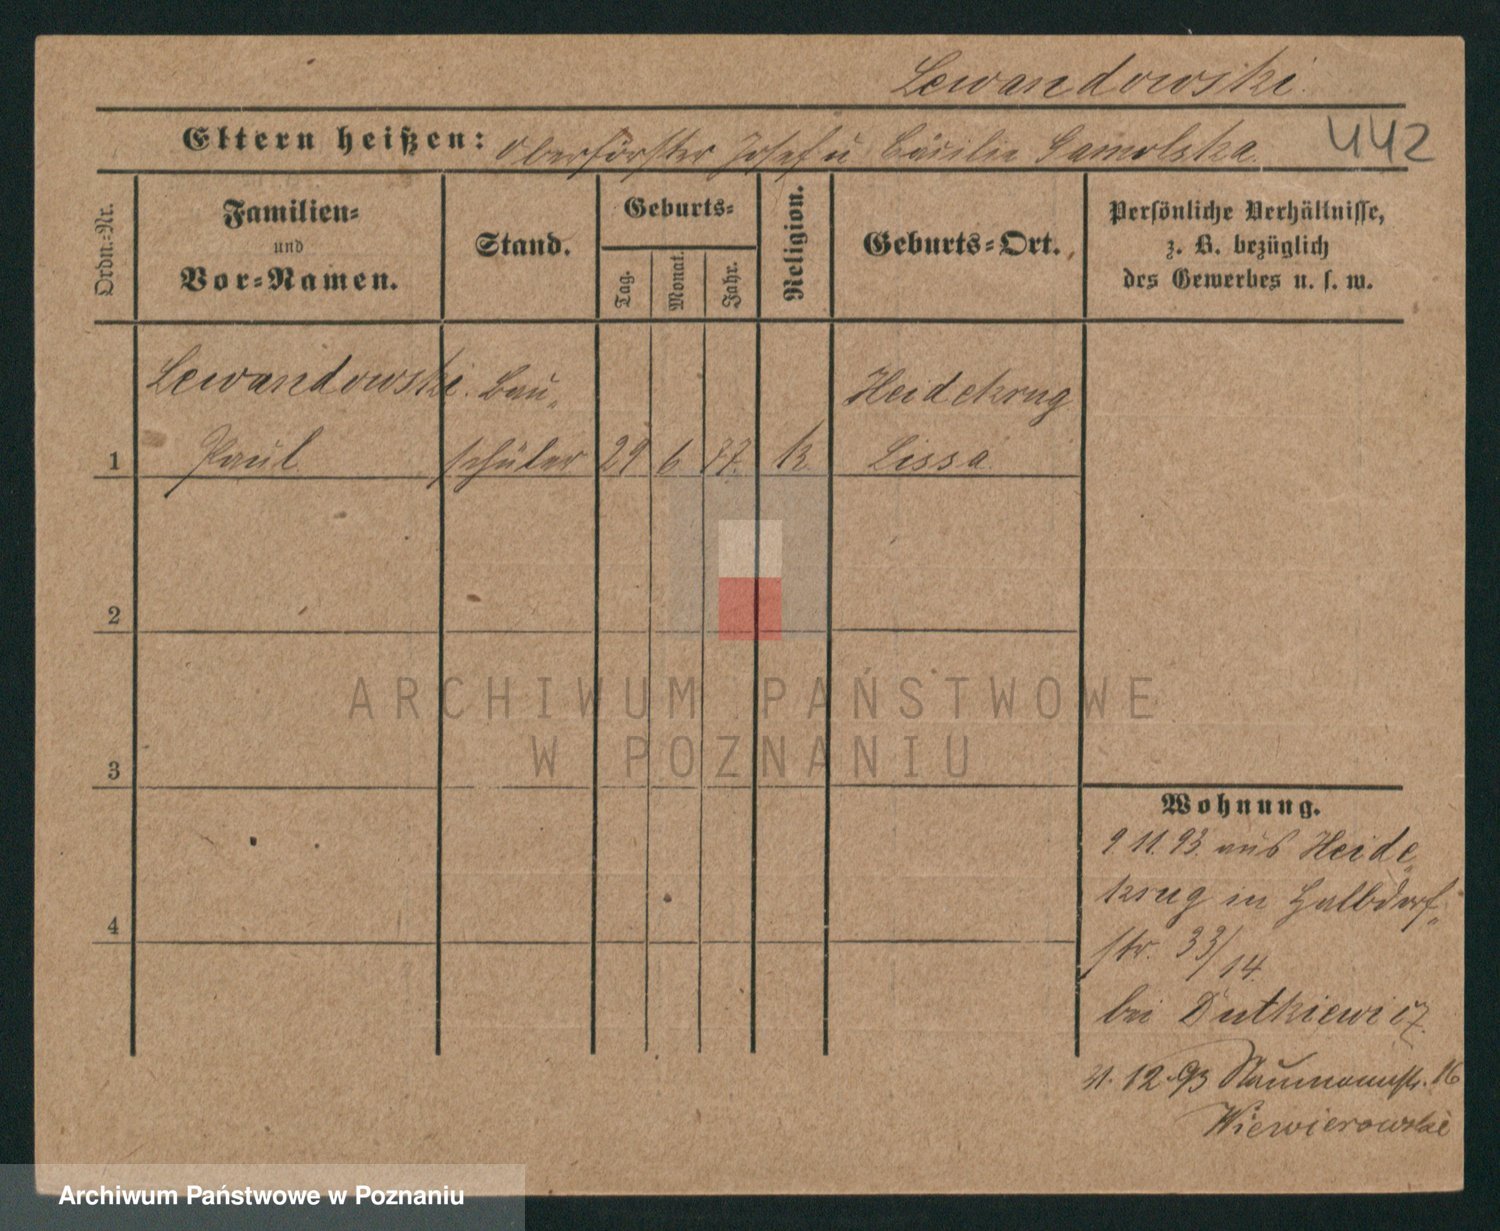 Lewandowski.
442
Eltern heißen: Oberförster Josef u Cäcilie Samolska
Ordn.=Nr.
Familien=
und
Vor=Namen.
Stand.
Geburts=
Tag.
Monat.
Jahr.
Religion.
Geburts=Ort.
Persönliche Verhältnisse,
z. B. bezüglich
des Gewerbes u. s. w.
Lewandowski. Bau- Heidekrug
1 Paul schüler 29 6 77. k. Lissa
2
3
4
Wohnung.
9. 11. 93. aus Heide-
krug in Halbdorf-
str. 33/14.
bei Dutkiewicz.
12. 93 Naumannstr. 16
Wiewierowski
ARCHIWUM PAŃSTWOWE
W POZNANIU
Archiwum Państwowe w Poznaniu